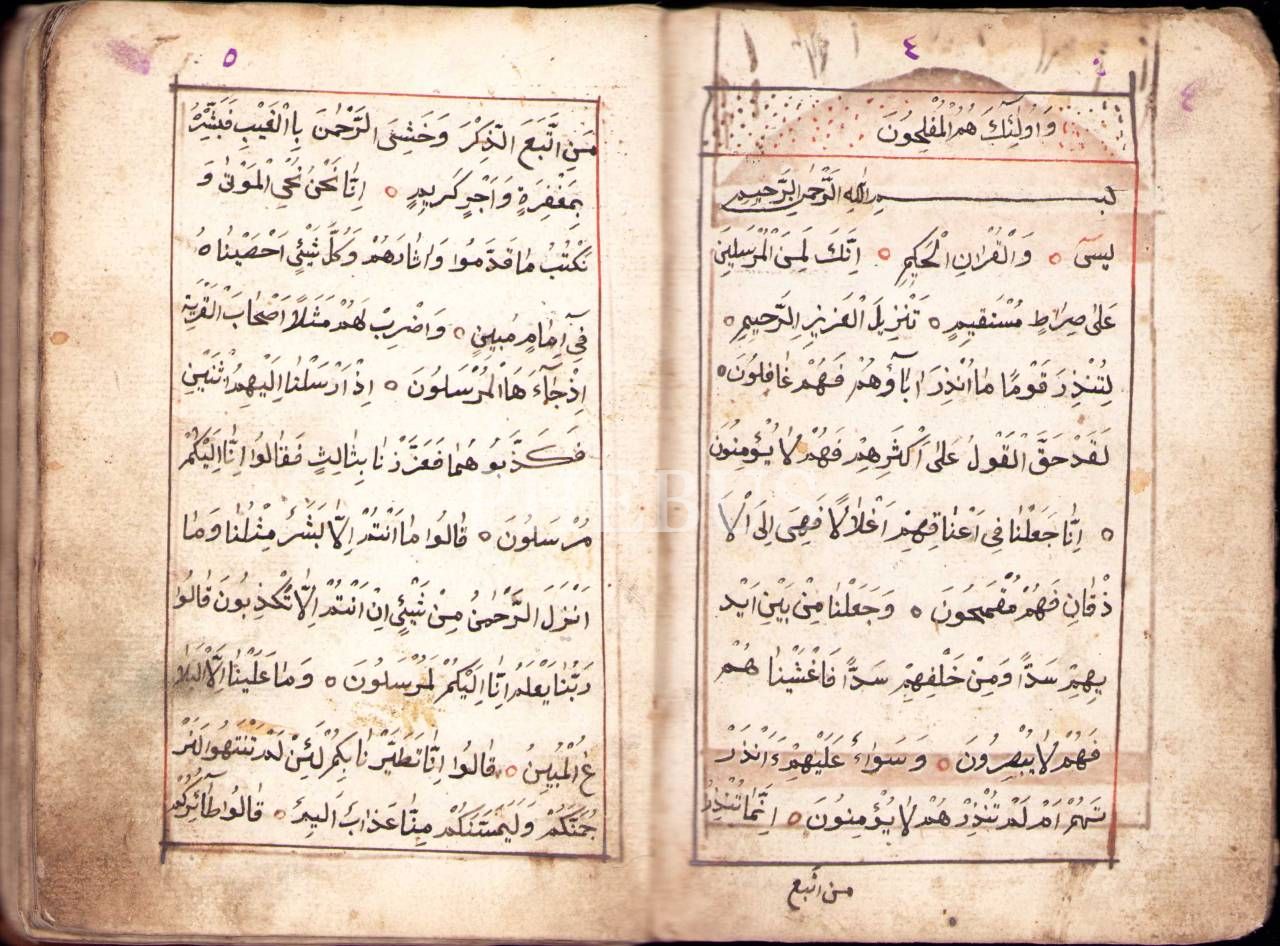 ٤
وَاُولٰٓئِكَ هُمُ الْمُفْلِحُونَ
بسم الله الرَّحْمٰنِ الرَّحِيمِ
يسٓ ۝ وَالْقُرْاٰنِ الْحَكِيمِ ۝ اِنَّكَ لَمِنَ الْمُرْسَلِينَ
عَلٰى صِرَاطٍ مُسْتَقِيمٍ ۝ تَنْزِيلَ الْعَزِيزِ الرَّحِيمِ ۝
لِتُنْذِرَ قَوْمًا مَا اُنْذِرَ اٰبَآؤُهُمْ فَهُمْ غَافِلُونَ ۝
لَقَدْ حَقَّ الْقَوْلُ عَلٰى اَكْثَرِهِمْ فَهُمْ لَا يُؤْمِنُونَ
۝ اِنَّا جَعَلْنَا فِى اَعْنَاقِهِمْ اَغْلَالًا فَهِىَ اِلَى الْاَ
ذْقَانِ فَهُمْ مُقْمَحُونَ ۝ وَجَعَلْنَا مِنْ بَيْنِ اَيْدِ
يهِمْ سَدًّا وَمِنْ خَلْفِهِمْ سَدًّا فَاَغْشَيْنَا هُمْ
فَهُمْ لَا يُبْصِرُونَ ۝ وَسَوَاءٌ عَلَيْهِمْ ءَاَنْذَرْ
تَهُمْ اَمْ لَمْ تُنْذِرْ هُمْ لَا يُؤْمِنُونَ ۝ اِنَّمَا تُنْذِرُ
من اتبع
٥
مَنِ اتَّبَعَ الذِّكْرَ وَخَشِىَ الرَّحْمٰنَ بِاالْغَيْبِ فَبَشِّرْهُ
بِمَغْفِرَةٍ وَاَجْرٍ كَرِيمٍ ۝ اِنَّا نَحْنُ نُحْيِ الْمَوْتٰى وَ
نَكْتُبُ مَا قَدَّمُوا وَاٰثَارَهُمْ وَكُلَّ شَيْئٍ اَحْصَيْنَاهُ
فِٓى اِمَامٍ مُبِينٍ ۝ وَاضْرِبْ لَهُمْ مَثَلًا اَصْحَابَ الْقَرْيَةِ
اِذْ جَآءَ هَا الْمُرْسَلُونَ ۝ اِذْ اَرْسَلْنَا اِلَيْهِمُ اثْنَيْنِ
فَكَذَّبُوهُمَا فَعَزَّزْنَا بِثَالِثٍ فَقَالُوا اِنَّا اِلَيْكُمْ
مُرْسَلُونَ ۝ قَالُوا مَا اَنْتُمْ اِلَّا بَشَرٌ مِثْلُنَا وَمَا
اَنْزَلَ الرَّحْمٰنُ مِنْ شَيْئٍ اِنْ اَنْتُمْ اِلَّا تَكْذِبُونَ قَالُوا
رَبُّنَا يَعْلَمُ اِنَّا اِلَيْكُمْ لَمُرْسَلُونَ ۝ وَمَا عَلَيْنَا اِلَّا الْبَلَا
غُ الْمُبِينُ ۝ قَالُوا اِنَّا تَطَيَّرْنَا بِكُمْ لَئِنْ لَمْ تَنْتَهُوا لَنَرْ
جُمَنَّكُمْ وَلَيَمَسَّنَّكُمْ مِنَّا عَذَابٌ اَلِيمٌ ۝ قَالُوا طَآئِرُكُمْ